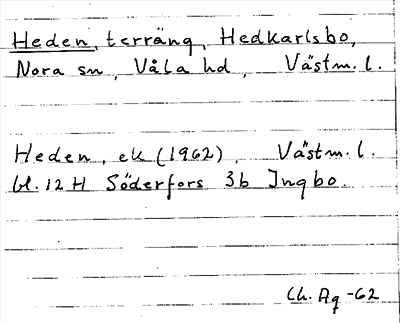 Heden, terräng, Hedkarlsbo,
Nora sn, Våla hd, Västm. l.
Heden, ek (1962), Västm. l.
bl. 12 H Söderfors 3b Ingbo.
Ch. Ag -62